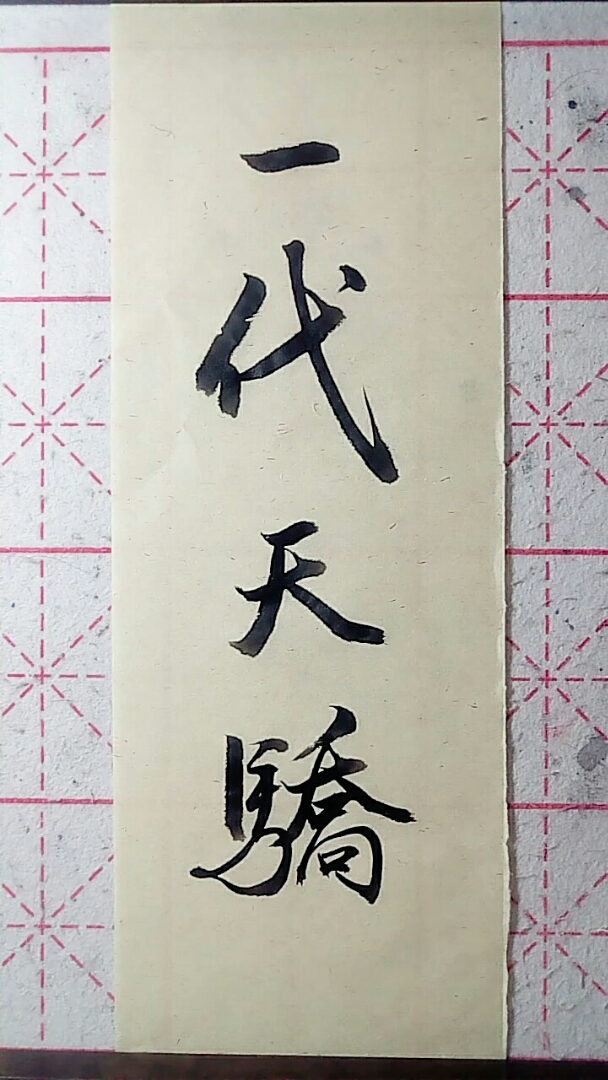 一代天驕